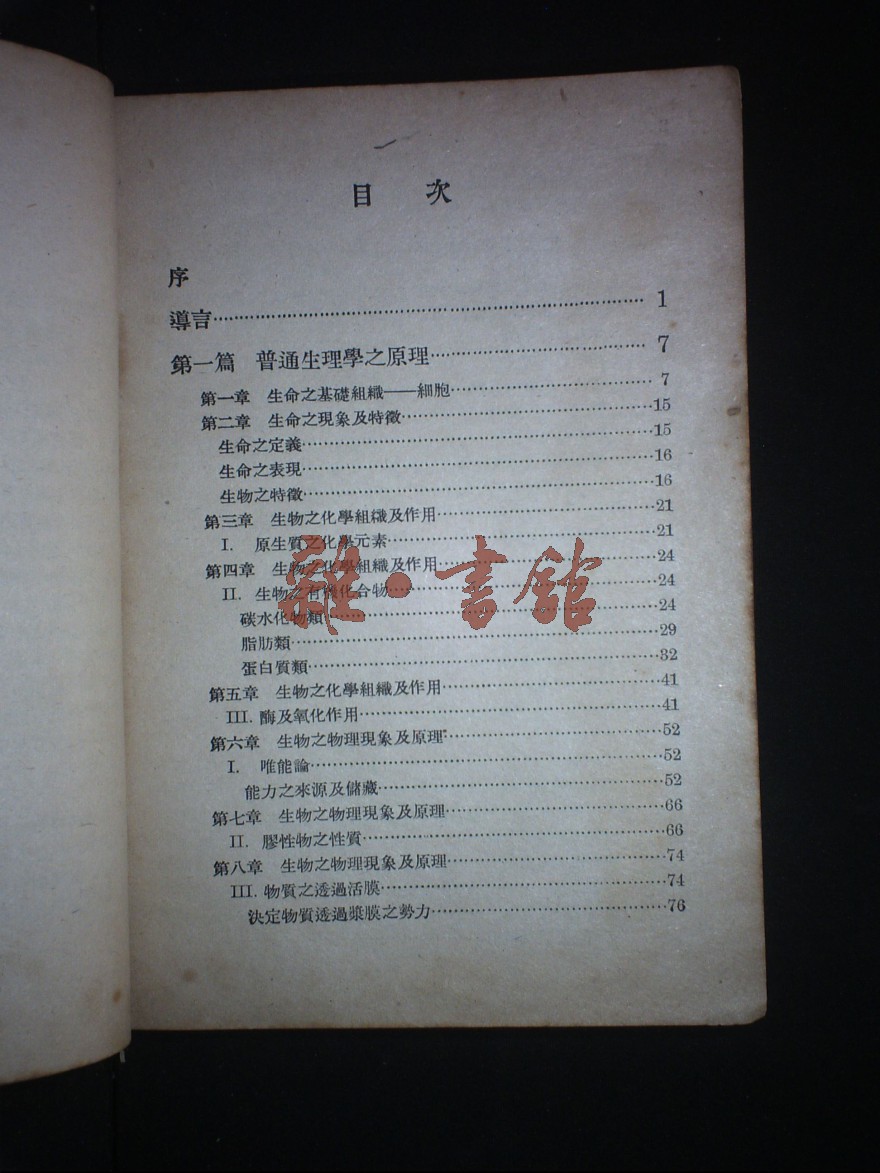 目 次
序
導言 1
第一篇 普通生理學之原理 7
第一章 生命之基礎組織——細胞 7
第二章 生命之現象及特徵 15
生命之定義 15
生命之表現 16
生物之特徵 16
第三章 生物之化學組織及作用 21
I. 原生質之化學元素 21
第四章 生物之化學組織及作用 24
II. 生物之有機化合物 24
碳水化物類 24
脂肪類 29
蛋白質類 32
第五章 生物之化學組織及作用 41
III. 酶及氧化作用 41
第六章 生物之物理現象及原理 52
I. 唯能論 52
能力之來源及儲藏 52
第七章 生物之物理現象及原理 66
II. 膠性物之性質 66
第八章 生物之物理現象及原理 74
III. 物質之透過活膜 74
決定物質透過漿膜之勢力 76
雜·書館